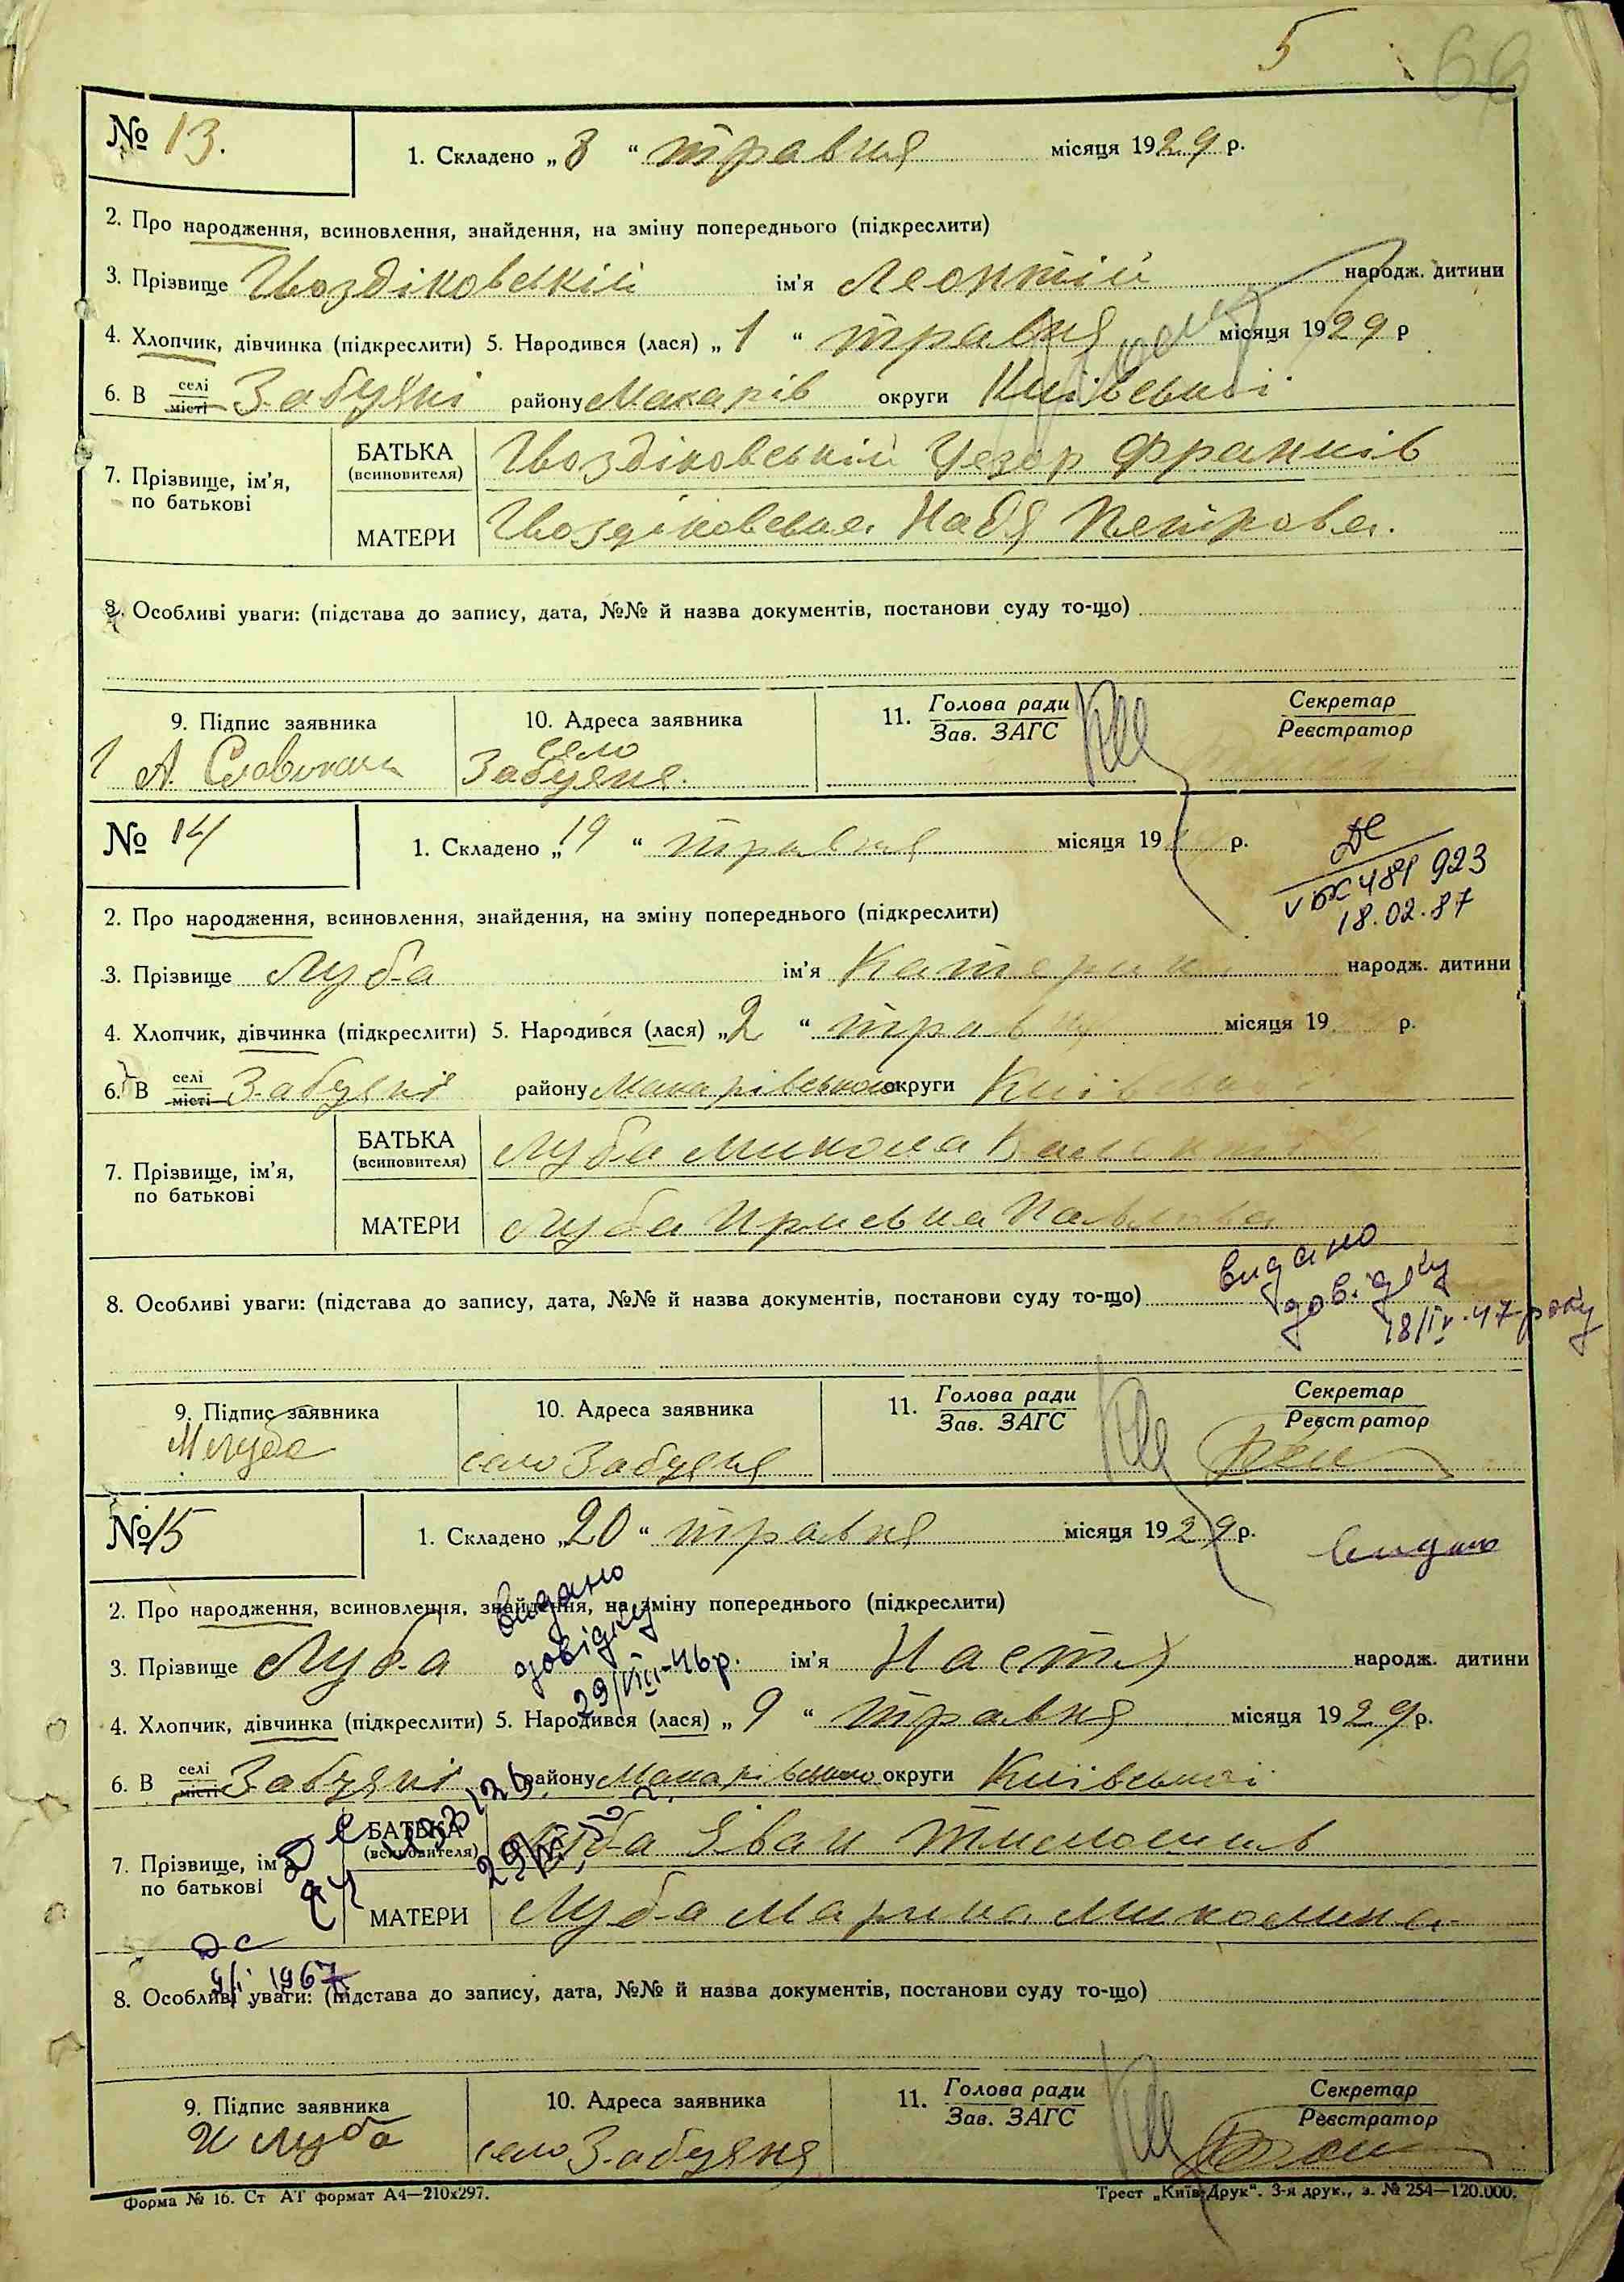 5
66
№ 13.
1. Складено „ 8 “ травня місяця 1929 р.
2. Про народження, всиновлення, знайдення, на зміну попереднього (підкреслити)
3. Прізвище Гвоздіковській ім'я Леонтій народж. дитини
4. Хлопчик, дівчинка (підкреслити) 5. Народився (лася) „ 1 “ травня місяця 1929 р
6. В селі місті Забуяні району Макарів округи Київської
7. Прізвище, ім'я, по батькові
БАТЬКА (всиновителя) Гвоздіковській Франків
МАТЕРИ Гвоздіковська Надя Петрова.
8. Особливі уваги: (підстава до запису, дата, №№ й назва документів, постанови суду то-що)
9. Підпис заявника
10. Адреса заявника
11. Голова ради Зав. ЗАГС
Секретар Реєстратор
А.
село Забуяня.
№ 14
1. Складено „ 19 “ травня місяця 19 р.
481 923
18.02.87
2. Про народження, всиновлення, знайдення, на зміну попереднього (підкреслити)
3. Прізвище Луба ім'я Катерина народж. дитини
4. Хлопчик, дівчинка (підкреслити) 5. Народився (лася) „ 2 “ травня місяця 19 р.
6. В селі місті Забуяні району Макарівського округи Київської
7. Прізвище, ім'я, по батькові
БАТЬКА (всиновителя) Луба Микола
МАТЕРИ Луба Павлова
видано
довідку
8. Особливі уваги: (підстава до запису, дата, №№ й назва документів, постанови суду то-що)
18/IV-47 року
9. Підпис заявника
10. Адреса заявника
11. Голова ради Зав. ЗАГС
Секретар Реєстратор
М Луба
село Забуяня
№ 15
1. Складено „ 20 “ травня місяця 1929 р.
видано
2. Про народження, всиновлення, знайдення, на зміну попереднього (підкреслити)
видано
довідку
29/VIII-46р.
3. Прізвище Луба ім'я Настя народж. дитини
4. Хлопчик, дівчинка (підкреслити) 5. Народився (лася) „ 9 “ травня місяця 1929 р.
6. В селі місті Забуяні району Макарівського округи Київської
7. Прізвище, ім'я, по батькові
БАТЬКА (всиновителя) Луба Іван Тимошів
МАТЕРИ Луба Марина Миколина
1967
8. Особливі уваги: (підстава до запису, дата, №№ й назва документів, постанови суду то-що)
9. Підпис заявника
10. Адреса заявника
11. Голова ради Зав. ЗАГС
Секретар Реєстратор
И Луба
село Забуяня
Форма № 16. Ст АТ формат А4—210х297.
Трест „Київ-Друк“. 3-я друк., з. № 254—120.000.